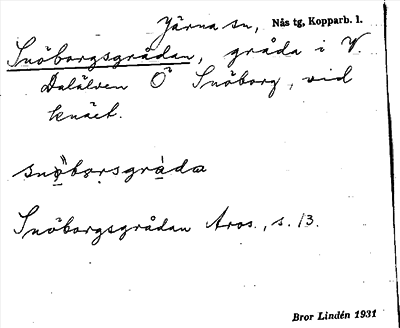 Järna sn, Nås tg, Kopparb. l.
Snöborgsgrådan, gråda i V.
Dalälven Ö Snöborg, vid
knäet.
snö̀borsgràda
Snöborgsgrådan Aros., s. 13.
Bror Lindén 1931